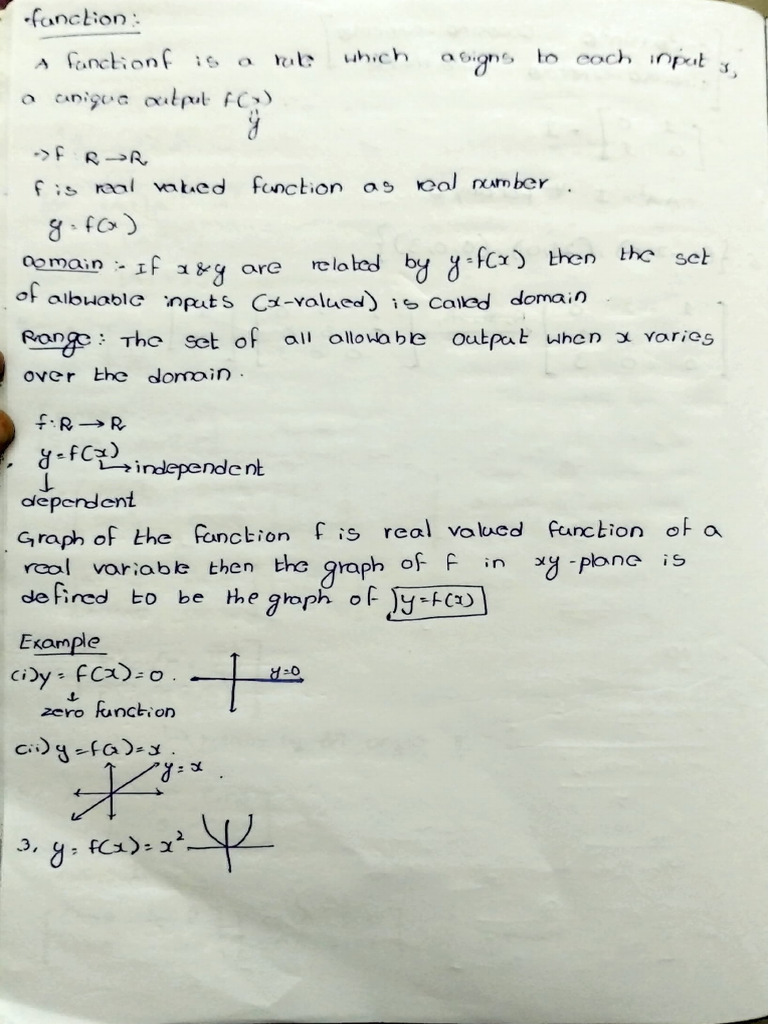 •function:-
A function f is a rule which asigns to each input x,
a unique output f(x)
y
→f R→R
f is real valued function as real number.
y = f(x)
Domain :- If x & y are related by y=f(x) then the set
of allowable inputs (x-valued) is called domain.
Range: The set of all allowable output when x varies
over the domain.
f:R→R
y=f(x) →independent
↓
dependent
Graph of the function f is real valued function of a
real variable then the graph of f in xy-plane is
defined to be the graph of y=f(x)
Example
(i) y = f(x)=0. y=0
↓
zero function
(ii) y=f(x)=x.
y=x.
3, y= f(x)=x²